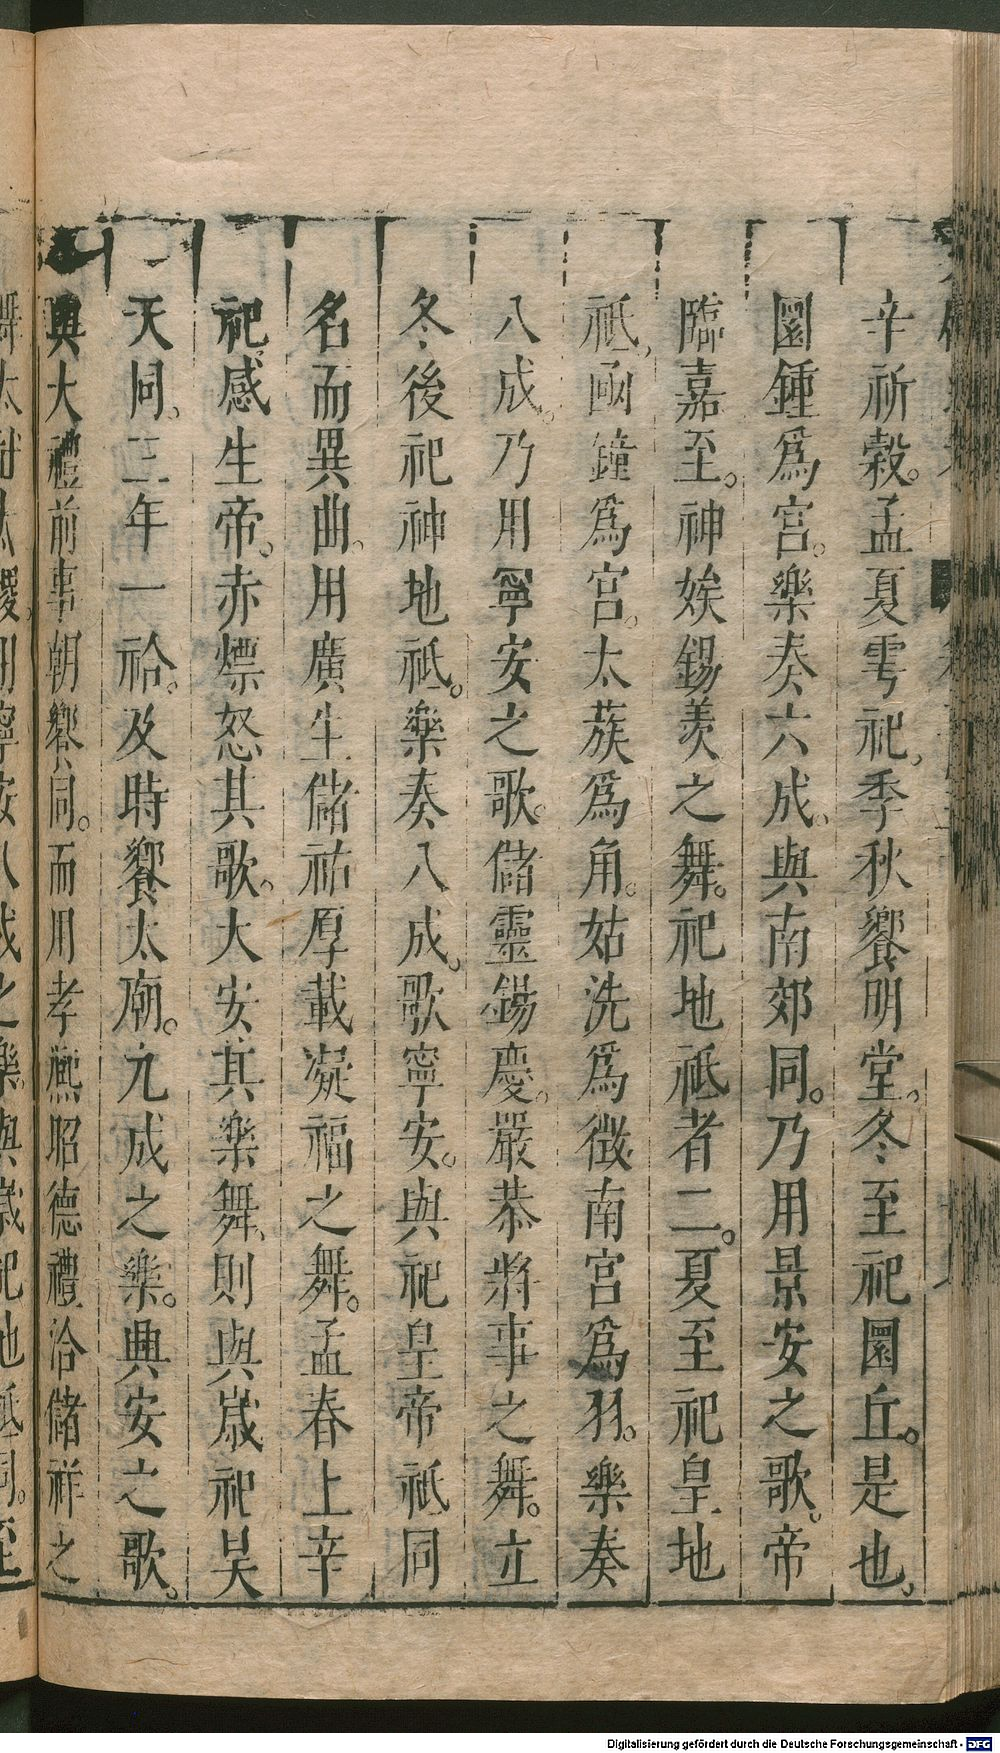 辛祈穀。孟夏雩祀。季秋饗明堂。冬至祀圜丘。是也。
圜鍾爲宮。樂奏六成。與南郊同。乃用景安之歌。帝
臨嘉至。神娭錫羨之舞。祀地祗者二。夏至祀皇地
祗。函鐘爲宮。太蔟爲角。姑洗爲徵。南宮爲羽。樂奏
八成。乃用寧安之歌。儲靈錫慶。嚴恭將事之舞。立
冬後祀神地祗。樂奏八成。歌寧安。與祀皇帝祗同
名而異曲。用廣生儲祐厚載凝福之舞。孟春上辛
祀感生帝。赤熛怒其歌。大安其樂舞。則與歲祀昊
天同。三年一祫。及時饗太廟。九成之樂。興安之歌。
與大禮前事朝饗同。而用孝熈昭德禮洽儲祥之
Digitalisierung gefördert durch die Deutsche Forschungsgemeinschaft - DFG